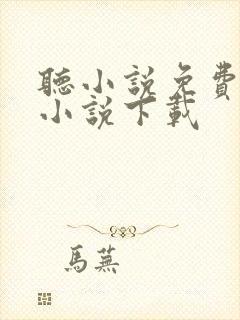 聽小說免費
小說下載
馬蕪